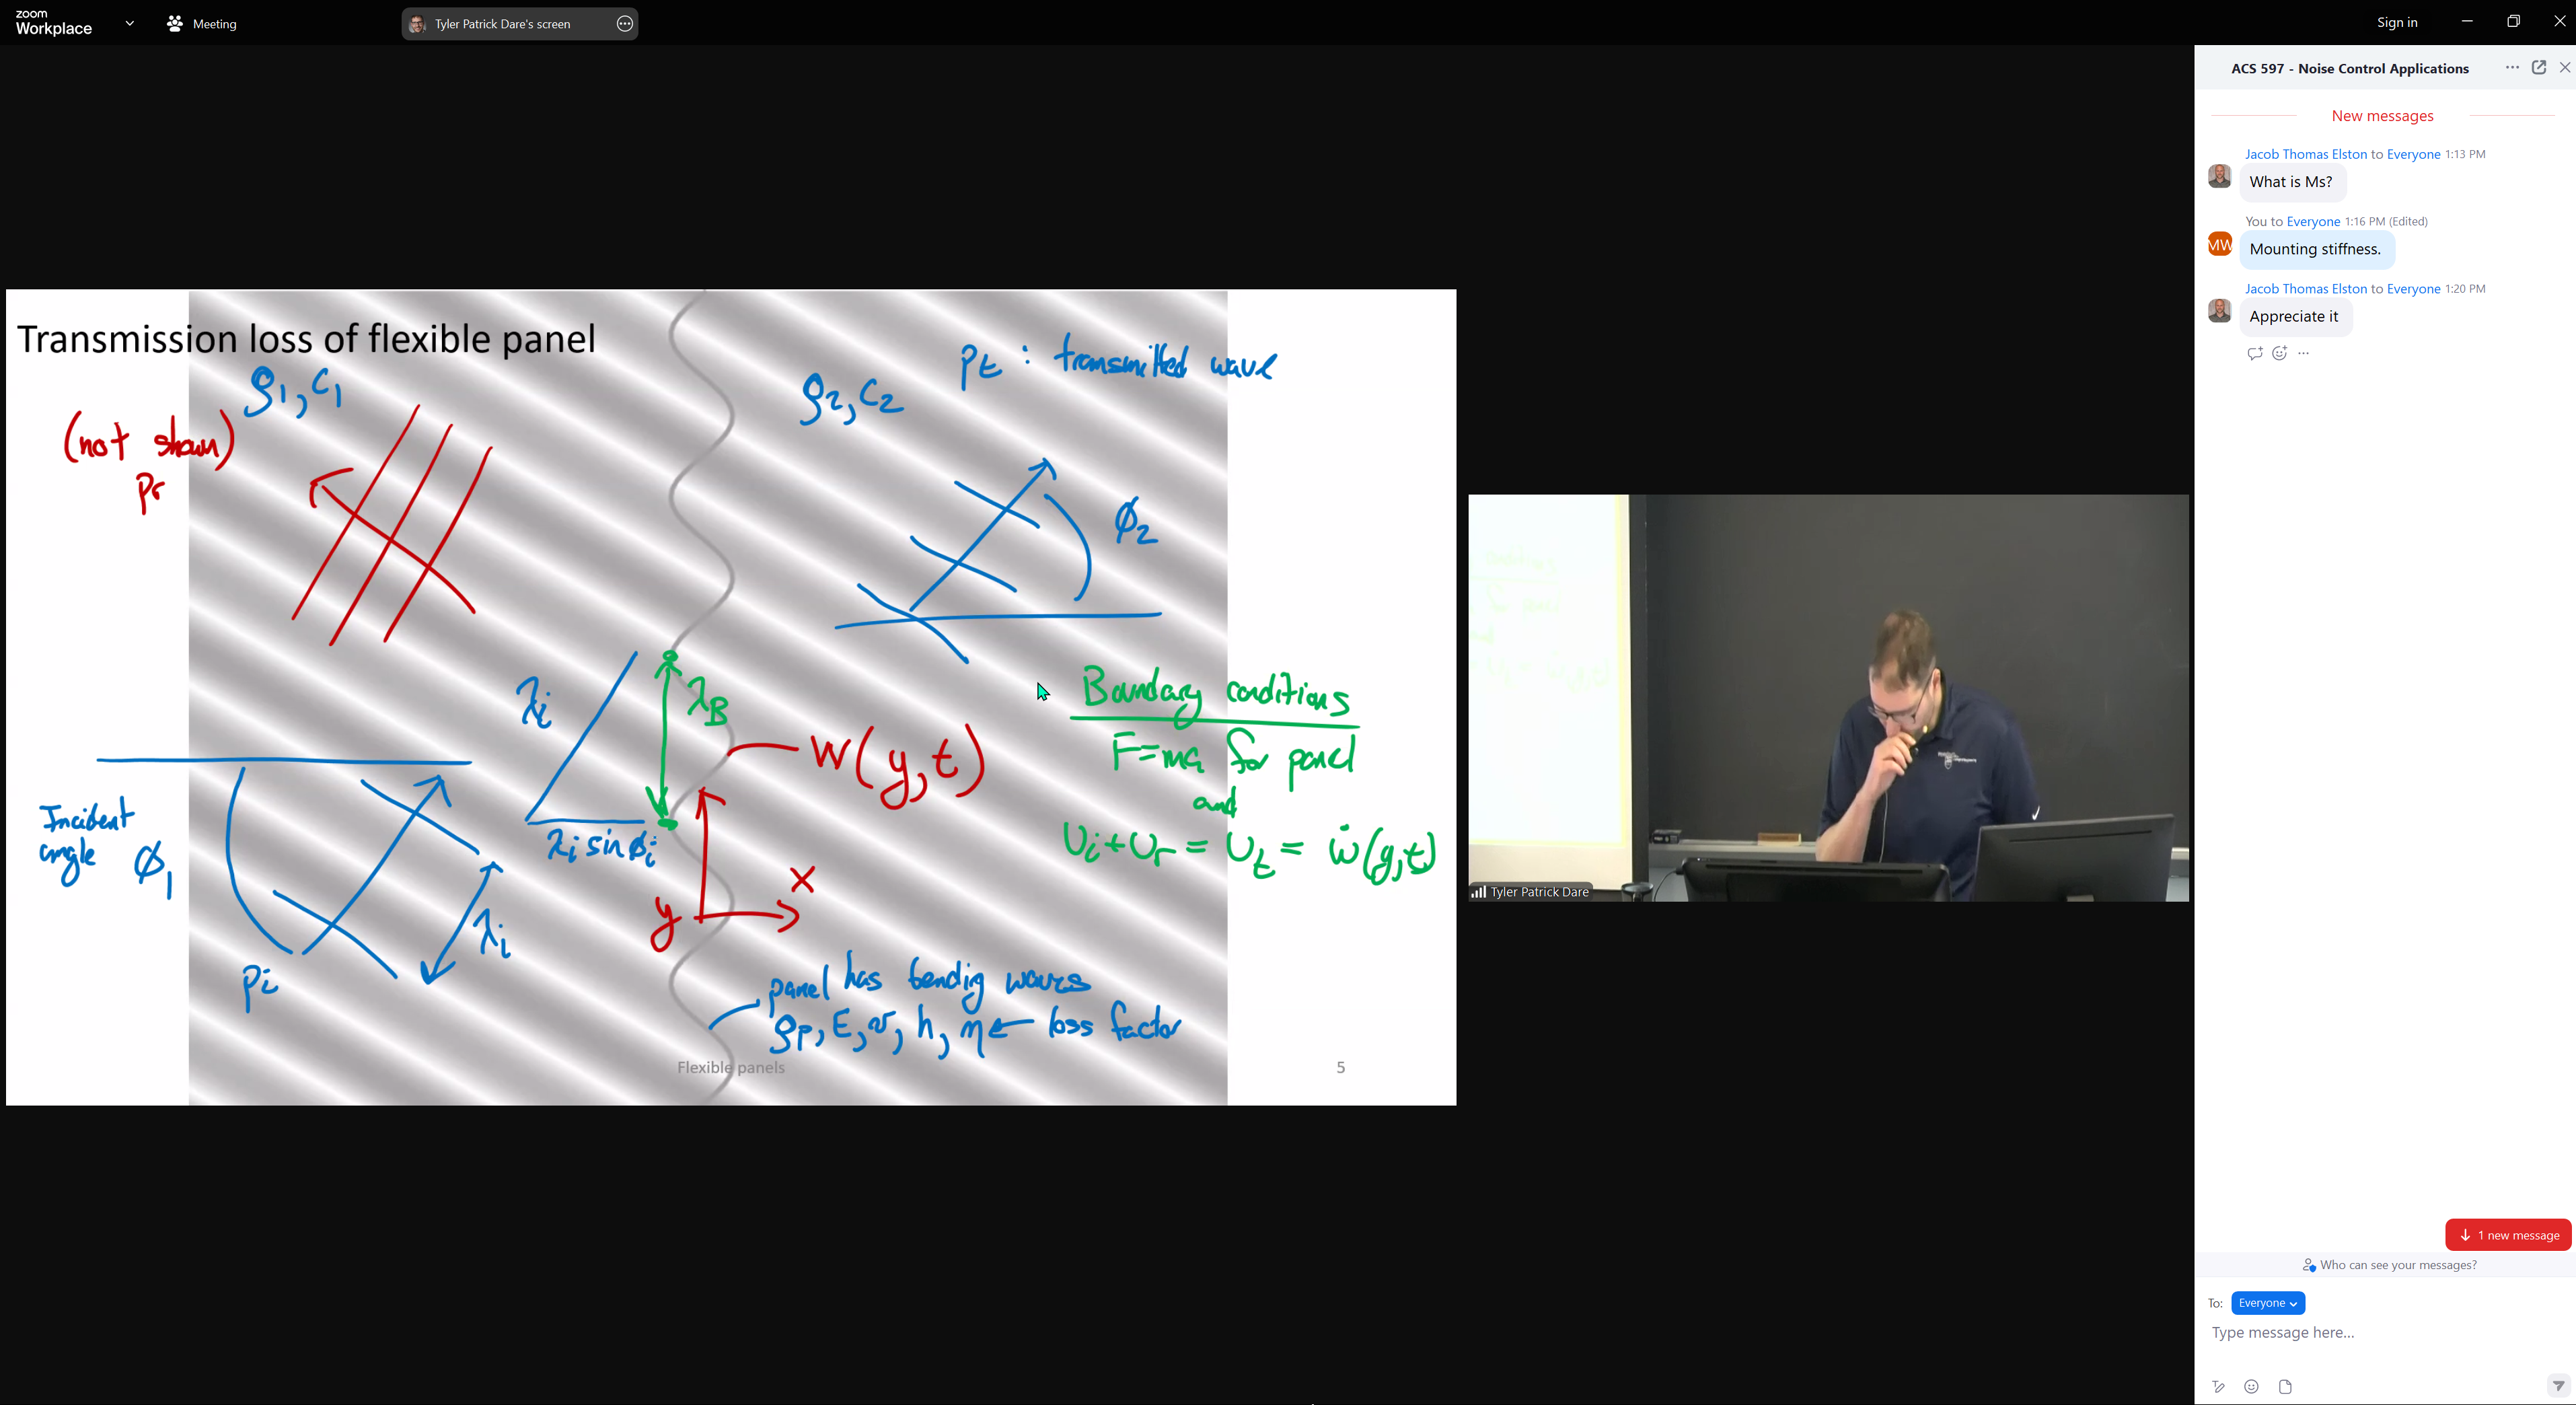 zoom
Workplace
Meeting
Tyler Patrick Dare's screen
Sign in
Transmission loss of flexible panel
ρ1, c1
(not shown)
pr
ρ2, c2
pt : transmitted wave
ϕ2
λi
λB
W(y,t)
λi sin ϕi
Incident
angle ϕ1
λi
pi
y
x
Boundary conditions
F=ma for panel
and
Ui+Ur = Ut = ẇ(y,t)
panel has bending waves
ρp, E, ν, h, η ← loss factor
Flexible panels
5
Tyler Patrick Dare
ACS 597 - Noise Control Applications
New messages
Jacob Thomas Elston to Everyone 1:13 PM
What is Ms?
You to Everyone 1:16 PM (Edited)
MW
Mounting stiffness.
Jacob Thomas Elston to Everyone 1:20 PM
Appreciate it
1 new message
Who can see your messages?
To: Everyone
Type message here...